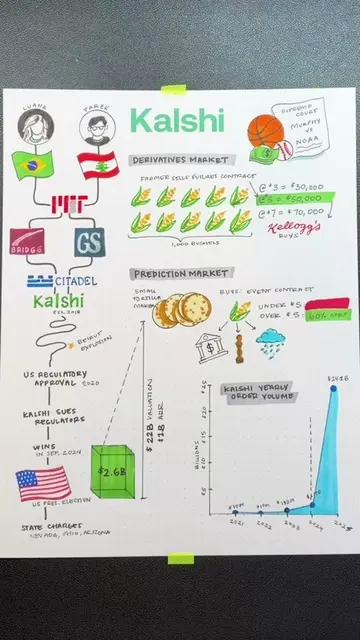 LUANA
TAREK
Kalshi
SUPREME
COURT
MURPHY
VS
NCAA
DERIVATIVES MARKET
FARMER SELLS FUTURES CONTRACT
@ $3 = $30,000
@ $5 = $50,000
@ $7 = $70,000
Kellogg's
BUYS
1,000 BUSHELS
MIT
BRIDGE
GS
CITADEL
Kalshi
EST. 2018
BEIRUT
EXPLOSION
PREDICTION MARKET
SMALL
TORTILLA
MAKER
BUYS EVENT CONTRACT
UNDER $5:
OVER $5:
US REGULATORY
APPROVAL 2020
KALSHI SUES
REGULATORS
WINS
IN SEP, 2024
US PRES. ELECTION
STATE CHARGES
NEVADA, OHIO, ARIZONA
$2.6B
$22B VALUATION
$1B ARR
KALSHI YEARLY
ORDER VOLUME
BILLIONS
$25
$20
$15
$10
$5
2021
2022
2023
2024